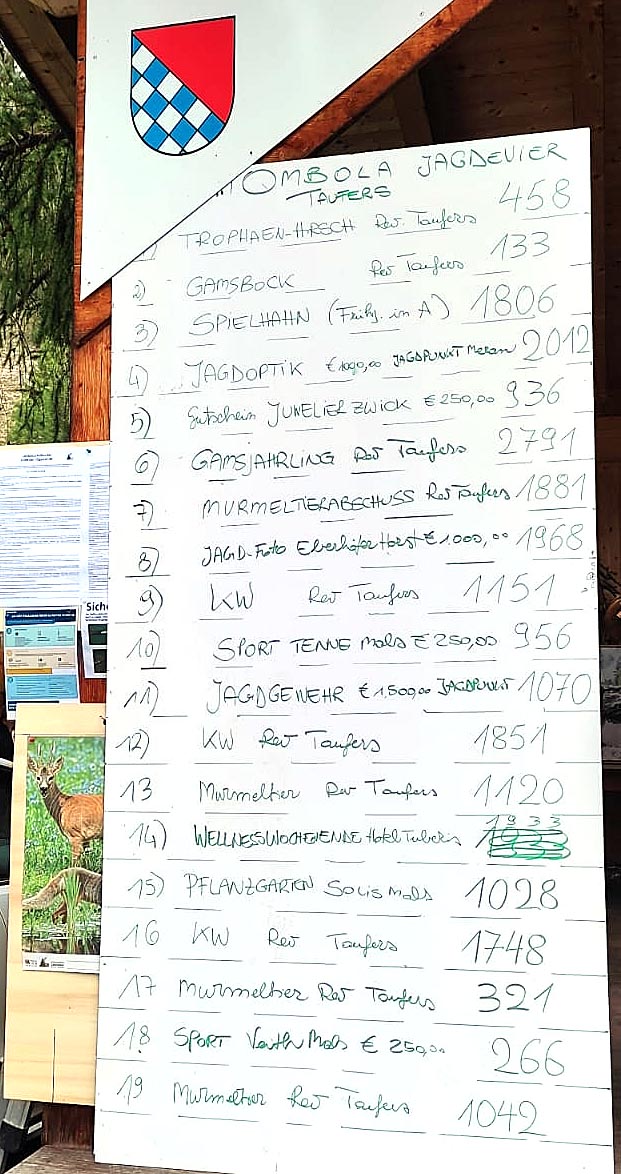 TOMBOLA JAGDEVIER
TAUFERS
TROPHAEN-HIRSCH Rev. Taufers 458
2) GAMSBOCK Rev Taufers 133
3) SPIELHAHN (Frühj. in A) 1806
4) JAGDOPTIK € 1000,00 JAGDPUNKT Meran 2012
5) Gutschein JUWELIER ZWICK € 250,00 936
6) GAMSJAHRLING Rev Taufers 2791
7) MURMELTIERABSCHUSS Rev Taufers 1881
8) JAGD-Foto Eberhöfer Horst € 1.000,00 1968
9) KW Rev Taufers 1151
10) SPORT TENNE Mals € 250,00 956
11) JAGDGEWEHR € 1,500,00 JAGDPUNKT 1070
12) KW Rev Taufers 1851
13 Murmeltier Rev Taufers 1120
14) WELLNESSWOCHENENDE Hotel Tuberis 1933
15) PFLANZGARTEN Solis Mals 1028
16 KW Rev Taufers 1748
17 Murmeltier Rev Taufers 321
18 SPORT Veith Mals € 250,00 266
19 Murmeltier Rev Taufers 1042
Siche